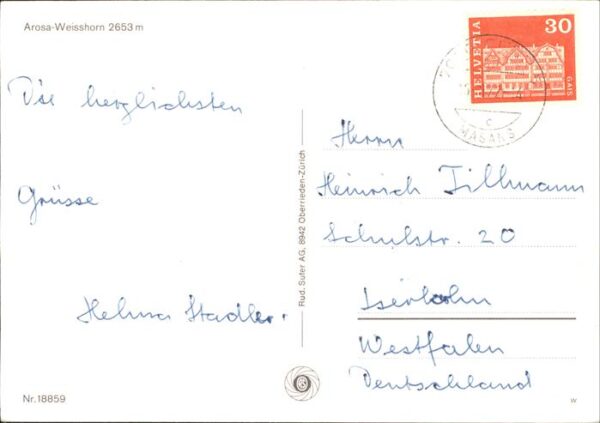 Arosa-Weisshorn 2653 m
Die herzlichsten
Grüsse
Helma Stadler.
Nr. 18859
Rud. Suter AG, 8942 Oberrieden-Zürich
HELVETIA
30
GAIS
MASANS
C
Herrn
Heinrich Tillmann
Schulstr. 20
Iserlohn
Westfalen
Deutschland
W